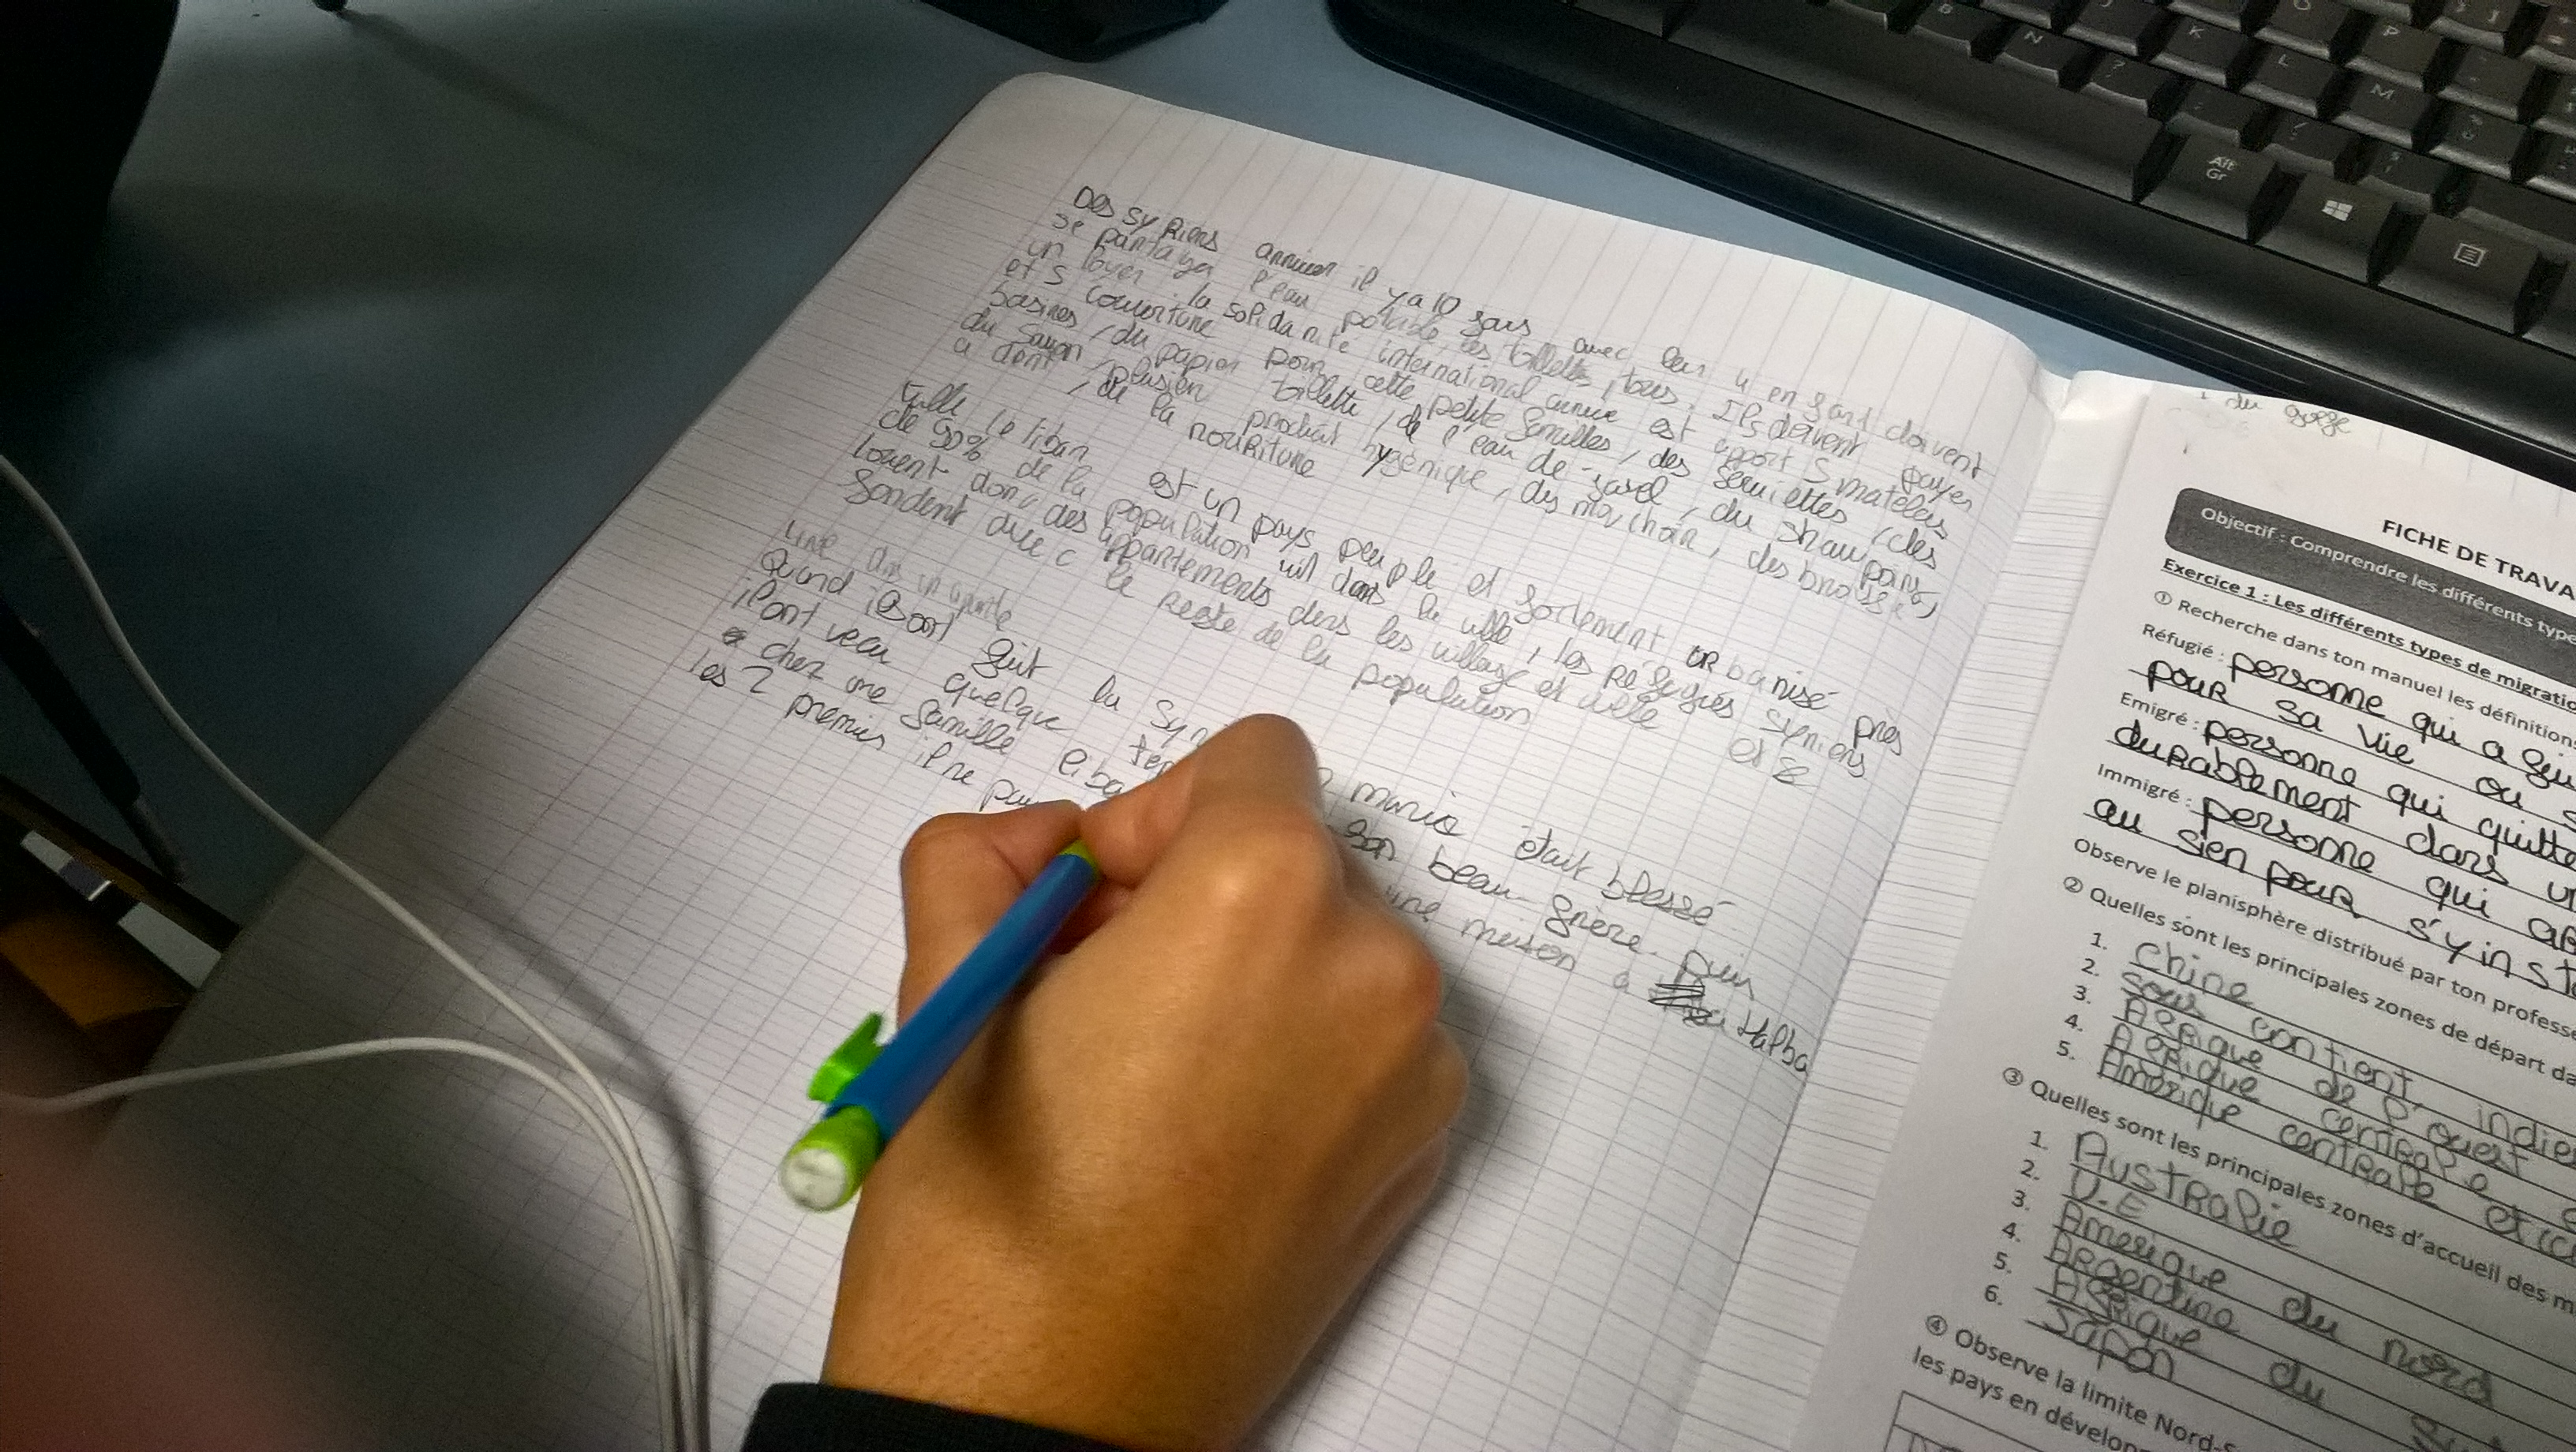 Des syriens arriver il y a 10 jours avec leur 4 enfant doivent
se partager l'eau potable, les toilettes, tous. Ils doivent payer
un loyer la solidarité international arrive est apport 5 matelas
et 5 couvriture pour cette petite familles, des serviettes, des
basines, du papier toilette, de l'eau de-javel, du shampoing,
du savon, plusieur produit hygénique, du mouchoir, des brosse
a dent, de la nourriture
Le liban est un pays peuplé et fortement urbanisé près
de 90% de la population vit dans la ville, les réfugiés syriens
louent donc des appartements dans les village et ville et se
fondent avec le reste de la population
Quand il sont fuit la Syr mario était blessé.
il ont vecu quelque son beau-frère. Puis
chez une famille liba une maison a Halba
les 2 premies il ne
du
FICHE DE TRAVA
Objectif : Comprendre les différents type
Exercice 1 : Les différents types de migratio
① Recherche dans ton manuel les définition
Réfugié : personne qui a fui
pour sa vie ou
Emigré : personne qui quitte
durablement dans
Immigré : personne qui
au sien pour s'y inst
Observe le planisphère distribué par ton profess
② Quelles sont les principales zones de départ da
1. chine
2. sous continent indie
3. Afrique de l'ouest
4. Afrique centrale
5. Amérique centrale et
③ Quelles sont les principales zones d'accueil des m
1. Australie
2. U.E
3. Amerique du nord
4. Argentine
5. Afrique du
6. Japon
④ Observe la limite Nord-S
les pays en dévelop
B
N
?
K
L
M
O
P
Alt Gr